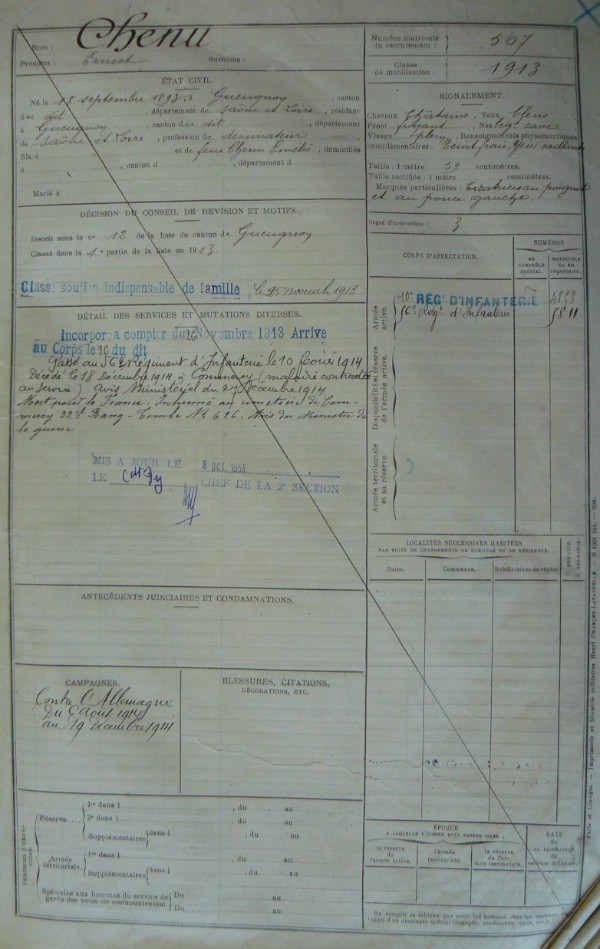 Nom : Chenu
Prénoms : Ernest Surnoms :
ÉTAT CIVIL.
Né le 18 septembre 1893, à Gueugnon, canton
dudit, département de Saône et Loire, résidant
à Gueugnon, canton dudit, département
de Saône et Loire, profession de dessinateur
fils d et de feue Chenu Emélie, domiciliés
à , canton d , département d
Marié à
DÉCISION DU CONSEIL DE RÉVISION ET MOTIFS.
Inscrit sous le n° 12 de la liste du canton de Gueugnon
Classé dans le 1e partie de la liste en 1913
Classé soutien indispensable de famille, le 25 novemb 1913
DÉTAIL DES SERVICES ET MUTATIONS DIVERSES.
Incorporé à compter du 26 Novembre 1913 Arrivé
au Corps le 26 du dit
Passé au 56e Régiment d'Infanterie le 10 1914
Décédé le 18 Décembre 1914 à Commercy (maladie contractée
au service) Avis Ministériel du 27 Décembre 1914
Mort pour la France. Inhumé au cimetière de Com-
mercy 22e Rang - Tombe N° 626. Avis du Ministre de
la guerre
MIS A JOUR LE 8 OCT. 1956
LE CHEF DE LA 2e SECTION
ANTÉCÉDENTS JUDICIAIRES ET CONDAMNATIONS.
CAMPAGNES.
Contre l'Allemagne
du 2 août 1914
au 19 décembre 1914
BLESSURES, CITATIONS,
DÉCORATIONS, ETC.
Réserve
1re dans l , du au
2e dans l , du au
Supplémentaires dans l , du au
, du au
Armée territoriale.
1re dans l , du au
Supplémentaires dans l , du au
, du au
Spéciales aux hommes du service de garde des voies de communication.
Du au
Du au
Numéro matricule du recrutement : 507
Classe de mobilisation : 1913
SIGNALEMENT.
Cheveux Châtains, Yeux bleus
Front fuyant, Nez légt cave
Visage plein, Renseignements physionomiques
complémentaires : Teint frais, Yeux saillants
Taille : 1 mètre 59 centimètres.
Taille rectifiée : 1 mètre centimètres.
Marques particulières : Cicatrice au poignet
et au pouce gauche
Degré d'instruction : 3
CORPS D'AFFECTATION.
NUMÉROS
au contrôle spécial.
matricule ou au répertoire.
Armée active.
10e RÉGt D'INFANTERIE
56e Régt d'Infanterie
Disponibilité et réserve de l'armée active.
Armée territoriale et sa réserve.
LOCALITÉS SUCCESSIVES HABITÉES
PAR SUITE DE CHANGEMENTS DE DOMICILE OU DE RÉSIDENCE.
Dates. Communes. Subdivisions de région.
ÉPOQUE
A LAQUELLE L'HOMME DOIT PASSER DANS :
la réserve de l'armée active.
l'armée territoriale.
la réserve de l'armée territoriale.
DATE de la LIBÉRATION du service militaire.